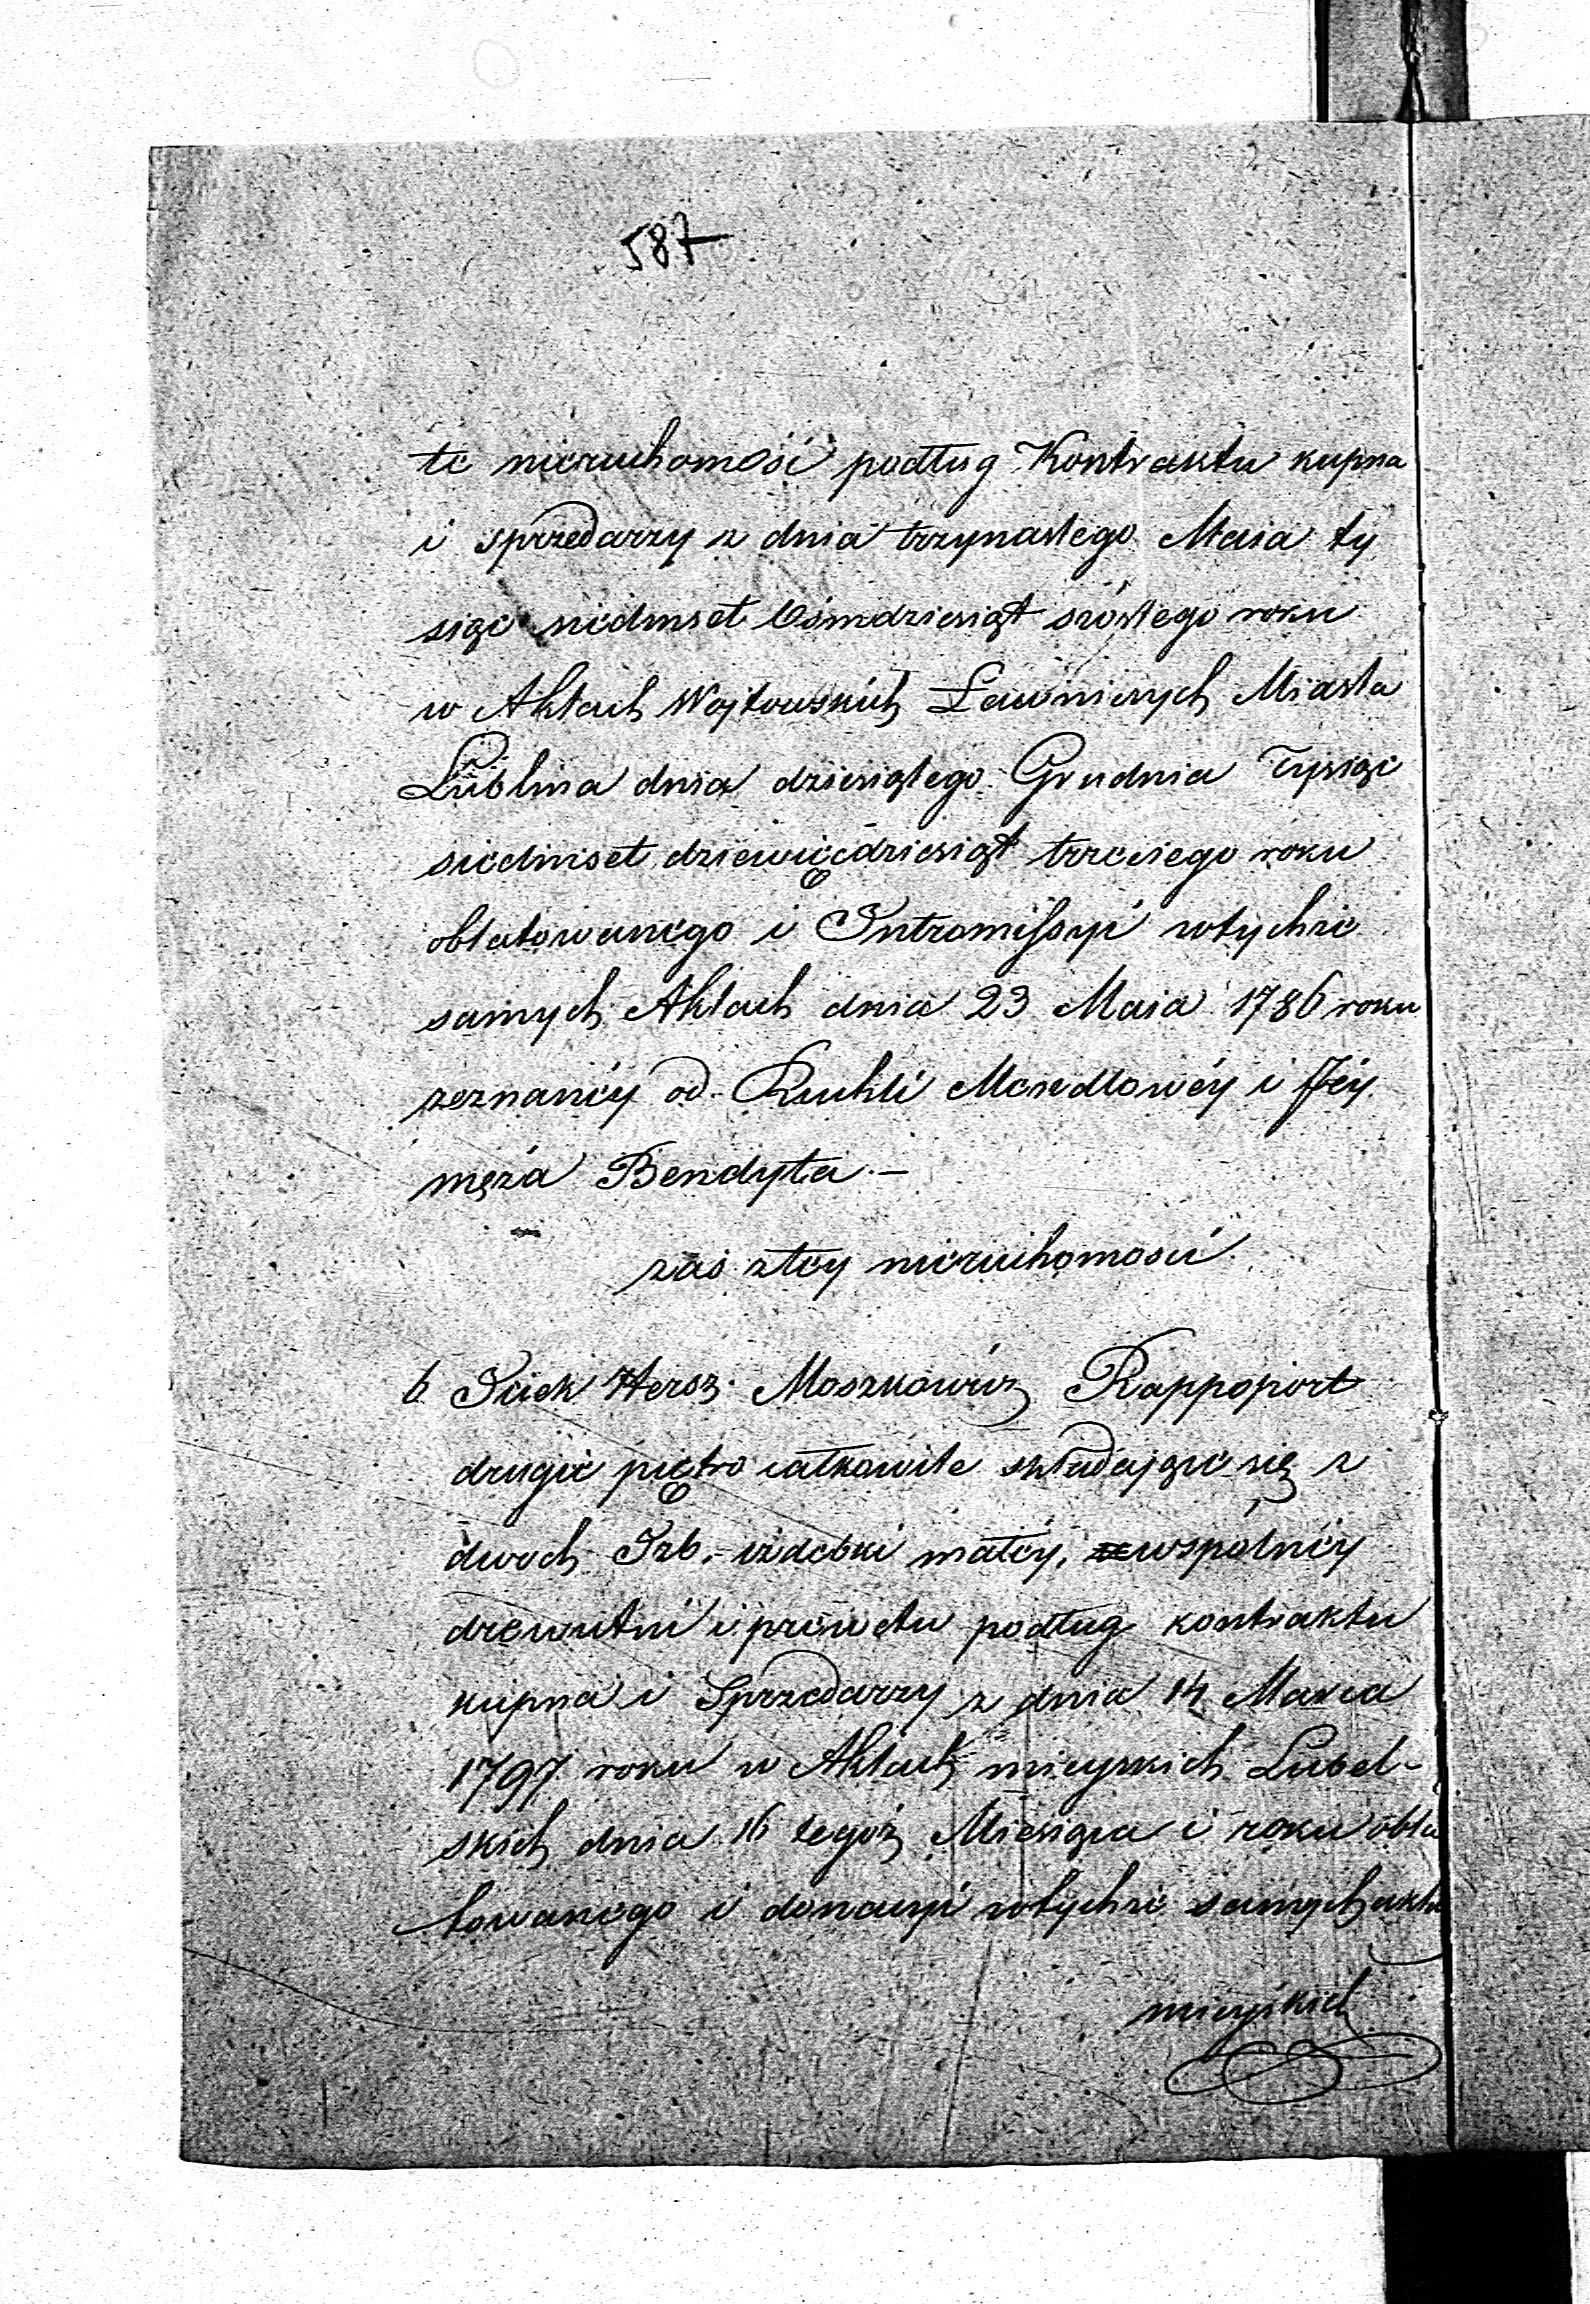 587
te nieruchomość podług Kontraktu kupna
i sprzedarzy z dnia trzynastego Maia ty
siąc siedmset Ośmdziesiąt szóstego roku
w Aktach Wojtowskich Ławniczych Miasta
Lublina dnia dziesiątego Grudnia Tysiąc
siedmset dziewięćdziesiąt trzeciego roku
oblatowanego i Intromissyi wtychże
samych Aktach dnia 23 Maia 1786 roku
zeznanéy od Ruchli Mendlowéy i Jéy
męża Bendyta. —
zaś ztey nieruchomości
6 Icek Hersz Moszkowicz Rappoport
drugie piętro całkowite składające się z
dwoch Izb, izdebki małéy, wspólnéy
drewutni i prewetu podług kontraktu
kupna i Sprzedarzy z dnia 14 Marca
1797 roku w Aktach mieyskich Lubel-
skich dnia 16 tegoż Miesiąca i roku obla
towanego i donacyi wtychże samych akta
mieyskich